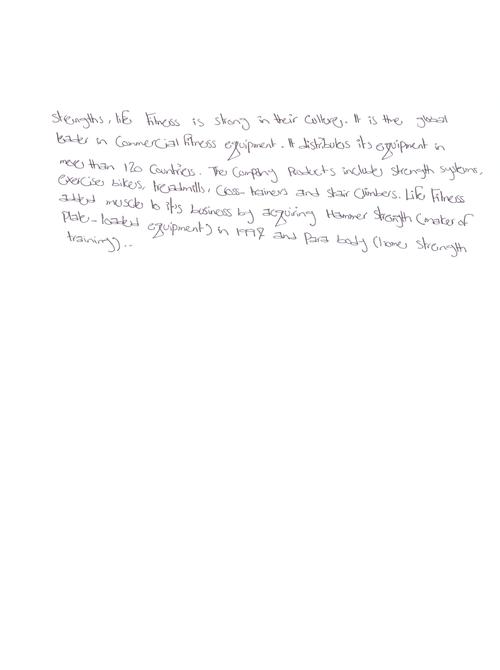 strengths, life Fitness is strong in their Culture. It is the global
leader in Commercial Fitness equipment. It distributes its equipment in
more than 120 Countries. The Company Products include strength systems,
exercise bikes, treadmills, Cross-trainers and stair Climbers. Life Fitness
added muscle to it's business by acquiring Hammer Strength (maker of
Plate-loaded equipment) in 1997 and Para body (home strength
training)..